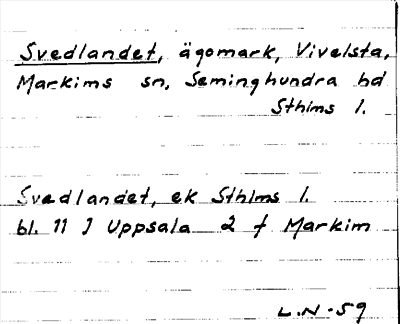 Svedlandet, ägomark, Vivelsta,
Markims sn, Seminghundra hd
Sthlms l.
Svedlandet, ek Sthlms l.
bl. 11 J Uppsala 2 f Markim
L.N-59